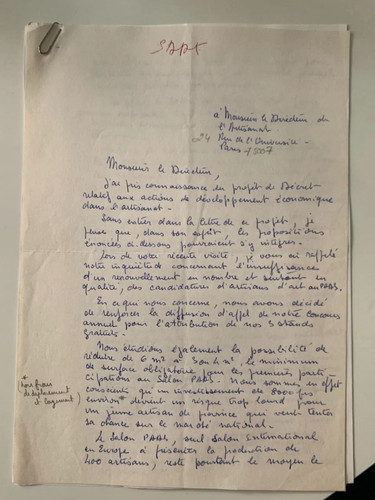 SAAX
à Monsieur le Directeur de
l'Artisanat
24 Rue de l'Université -
Paris 75007
Monsieur le Directeur,
J'ai pris connaissance du projet de Décret
relatif aux actions de développement économique
dans l'artisanat -
Sans entrer dans la lettre de ce projet, je
pense que, dans son esprit, les propositions
énoncées ci-dessous pourraient s'y intégrer -
Lors de votre récente visite, je vous ai rappelé
notre inquiétude concernant l'insuffisance
d'un renouvellement en nombre et surtout en
qualité, des candidatures d'artisans d'art au
En ce qui nous concerne, nous avons décidé
de renforcer la diffusion d'appel de notre concours
annuel pour l'attribution de nos 3 stands
gratuits -
Nous étudions également la possibilité de
réduire de 6 m² à 5 ou 4 m², le minimum
de surface obligatoire pour les premières parti-
cipations au Salon Nous sommes en effet
conscients qu'un investissement de 8000 frs
environ* devient un risque trop lourd pour
un jeune artisan de province qui veut tenter
sa chance sur le marché national -
* hors frais
de déplacement
et logement
Le Salon seul Salon International
en Europe à présenter la production de
400 artisans, reste pourtant le moyen le